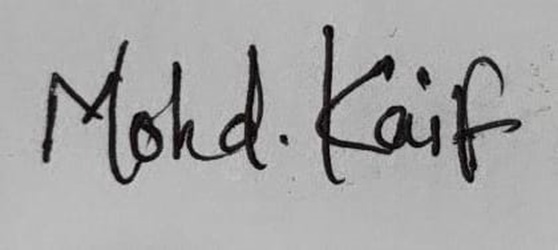 Mohd. Kaif